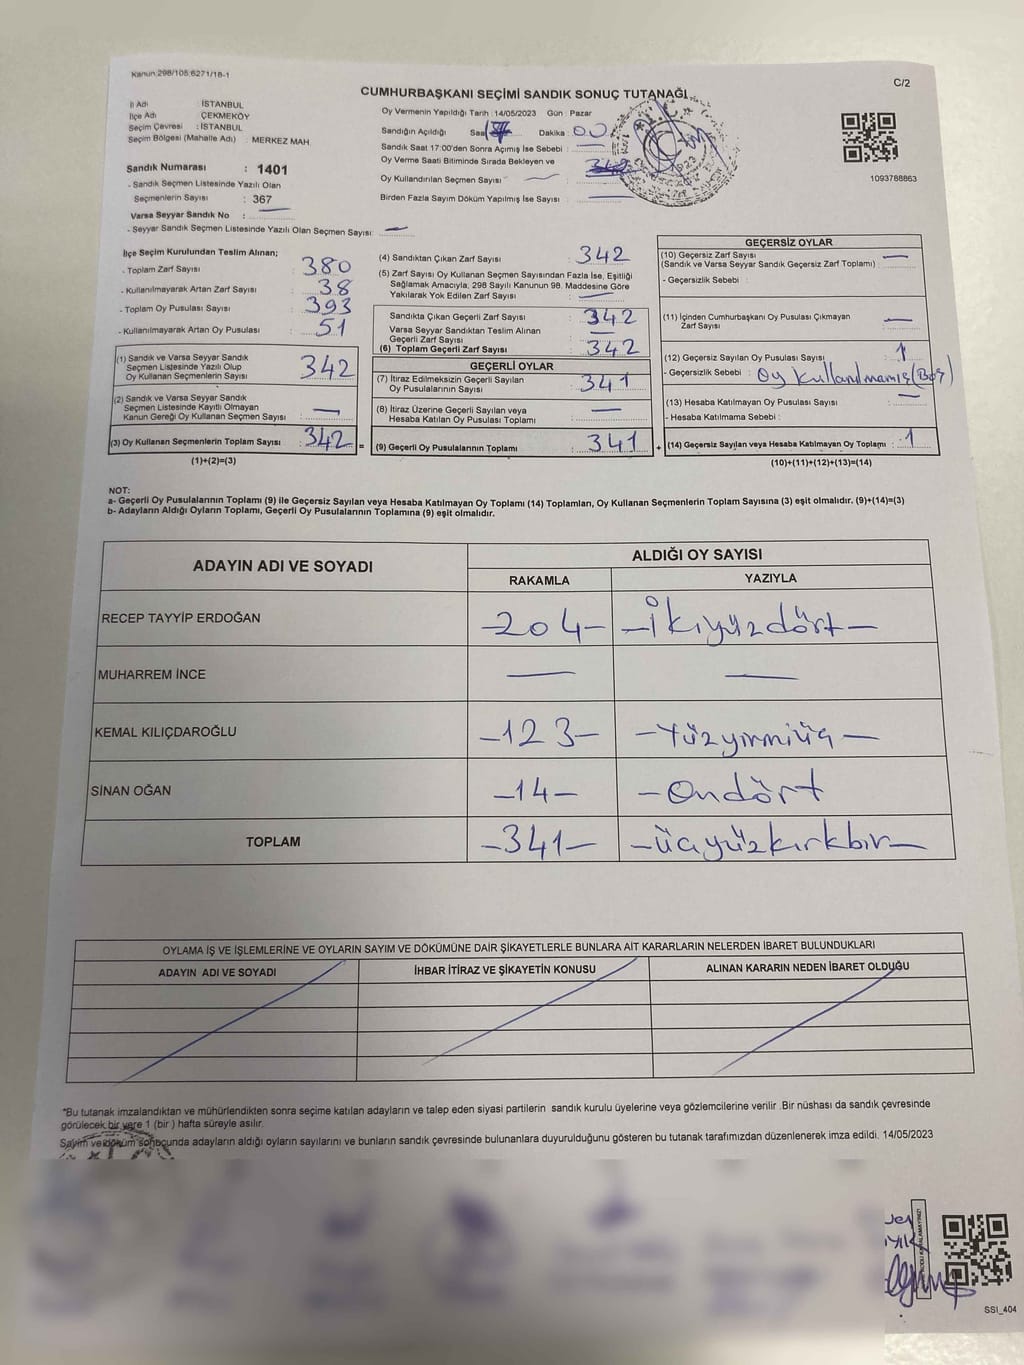 Kanun:298/105;6271/18-1
C/2
CUMHURBAŞKANI SEÇİMİ SANDIK SONUÇ TUTANAĞI
İl Adı : İSTANBUL
İlçe Adı : ÇEKMEKÖY
Seçim Çevresi : İSTANBUL
Seçim Bölgesi (Mahalle Adı) : MERKEZ MAH.
Sandık Numarası : 1401
- Sandık Seçmen Listesinde Yazılı Olan
Seçmenlerin Sayısı : 367
Varsa Seyyar Sandık No :
- Seyyar Sandık Seçmen Listesinde Yazılı Olan Seçmen Sayısı: —
Oy Vermenin Yapıldığı Tarih :14/05/2023 Gün : Pazar
Sandığın Açıldığı Saat Dakika : 00
Sandık Saat 17:00'den Sonra Açımış İse Sebebi :
Oy Verme Saati Bitiminde Sırada Bekleyen ve
Oy Kullandırılan Seçmen Sayısı :
Birden Fazla Sayım Döküm Yapılmış İse Sayısı : —
1093788863
İlçe Seçim Kurulundan Teslim Alınan;
- Toplam Zarf Sayısı : 380
- Kullanılmayarak Artan Zarf Sayısı : 38
- Toplam Oy Pusulası Sayısı : 393
- Kullanılmayarak Artan Oy Pusulası : 51
(1) Sandık ve Varsa Seyyar Sandık
Seçmen Listesinde Yazılı Olup
Oy Kullanan Seçmenlerin Sayısı : 342
(2) Sandık ve Varsa Seyyar Sandık
Seçmen Listesinde Kayıtlı Olmayan
Kanun Gereği Oy Kullanan Seçmen Sayısı : —
(3) Oy Kullanan Seçmenlerin Toplam Sayısı : 342 =
(1)+(2)=(3)
(4) Sandıktan Çıkan Zarf Sayısı : 342
(5) Zarf Sayısı Oy Kullanan Seçmen Sayısından Fazla İse, Eşitliği
Sağlamak Amacıyla, 298 Sayılı Kanunun 98. Maddesine Göre
Yakılarak Yok Edilen Zarf Sayısı : —
Sandıkta Çıkan Geçerli Zarf Sayısı : 342
Varsa Seyyar Sandıktan Teslim Alınan
Geçerli Zarf Sayısı : —
(6) Toplam Geçerli Zarf Sayısı : 342
GEÇERLİ OYLAR
(7) İtiraz Edilmeksizin Geçerli Sayılan
Oy Pusulalarının Sayısı : 341
(8) İtiraz Üzerine Geçerli Sayılan veya
Hesaba Katılan Oy Pusulası Toplamı : —
(9) Geçerli Oy Pusulalarının Toplamı : 341 +
GEÇERSİZ OYLAR
(10) Geçersiz Zarf Sayısı
(Sandık ve Varsa Seyyar Sandık Geçersiz Zarf Toplamı) : —
- Geçersizlik Sebebi :
(11) İçinden Cumhurbaşkanı Oy Pusulası Çıkmayan
Zarf Sayısı : —
(12) Geçersiz Sayılan Oy Pusulası Sayısı : 1
- Geçersizlik Sebebi : Oy kullanılmamış (Boş)
(13) Hesaba Katılmayan Oy Pusulası Sayısı : —
- Hesaba Katılmama Sebebi :
(14) Geçersiz Sayılan veya Hesaba Katılmayan Oy Toplamı : 1
(10)+(11)+(12)+(13)=(14)
NOT:
a- Geçerli Oy Pusulalarının Toplamı (9) ile Geçersiz Sayılan veya Hesaba Katılmayan Oy Toplamı (14) Toplamları, Oy Kullanan Seçmenlerin Toplam Sayısına (3) eşit olmalıdır. (9)+(14)=(3)
b- Adayların Aldığı Oyların Toplamı, Geçerli Oy Pusulalarının Toplamına (9) eşit olmalıdır.
ADAYIN ADI VE SOYADI
ALDIĞI OY SAYISI
RAKAMLA YAZIYLA
RECEP TAYYİP ERDOĞAN -204- -İkiyüzdört-
MUHARREM İNCE — —
KEMAL KILIÇDAROĞLU -123- -Yüzyirmiüç-
SİNAN OĞAN -14- -Ondört
TOPLAM -341- -üçyüzkırkbir-
OYLAMA İŞ VE İŞLEMLERİNE VE OYLARIN SAYIM VE DÖKÜMÜNE DAİR ŞİKAYETLERLE BUNLARA AİT KARARLARIN NELERDEN İBARET BULUNDUKLARI
ADAYIN ADI VE SOYADI İHBAR İTİRAZ VE ŞİKAYETİN KONUSU ALINAN KARARIN NEDEN İBARET OLDUĞU
*Bu tutanak imzalandıktan ve mühürlendikten sonra seçime katılan adayların ve talep eden siyasi partilerin sandık kurulu üyelerine veya gözlemcilerine verilir .Bir nüshası da sandık çevresinde
görülecek bir yere 1 (bir ) hafta süreyle asılır.
Sayım ve döküm sonucunda adayların aldığı oyların sayılarını ve bunların sandık çevresinde bulunanlara duyurulduğunu gösteren bu tutanak tarafımızdan düzenlenerek imza edildi. 14/05/2023
SSI_404